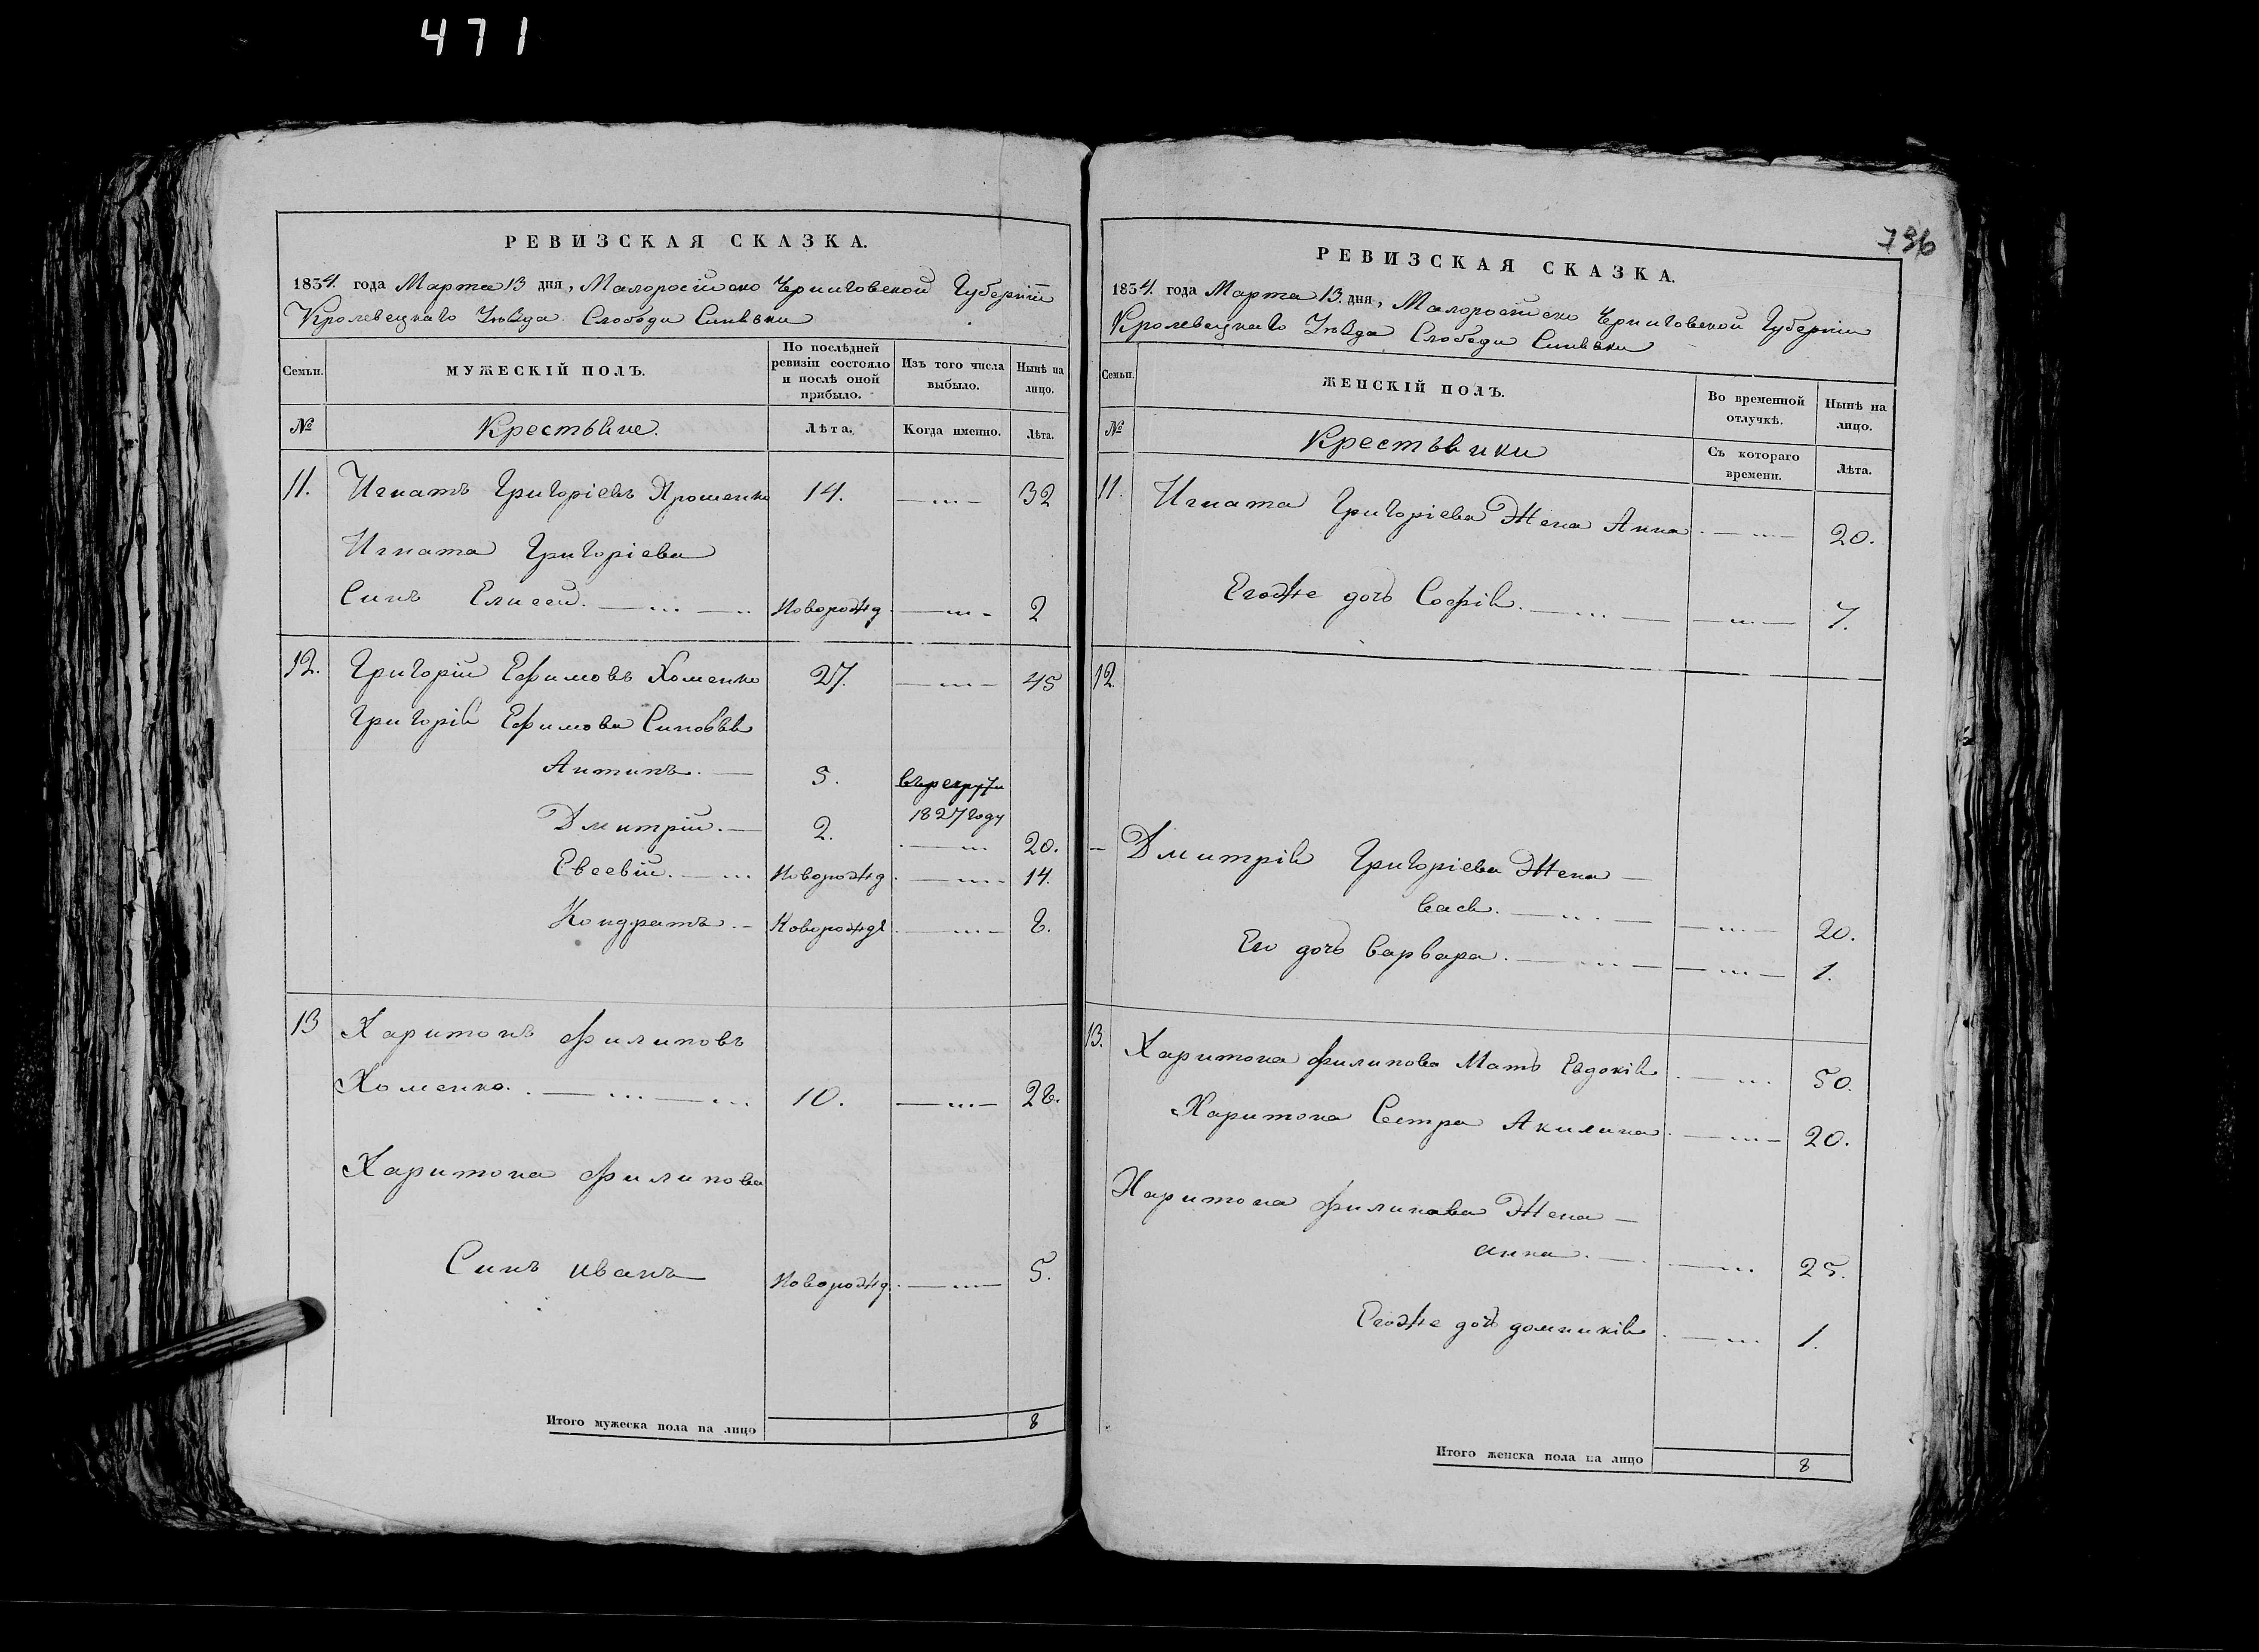 471
РЕВИЗСКАЯ СКАЗКА.
1834. года Марта 13 дня, Малоросійско Черниговской Губерніи
Кролевецкаго Уѣзда Слободи
Семьи.
МУЖЕСКІЙ ПОЛЪ.
По послѣдней ревизіи состояло и послѣ оной прибыло.
Изъ того числа выбыло.
Нынѣ на лицо.
№
Крестьяне.
Лѣта.
Когда именно.
Лѣта.
11. Игнатъ Григоріевъ Ярошенко 14. 32
Игната Григоріева
Синъ Елисей. Новорожд 2
12. Григорій Ефимовъ Хоменко 27. 45
Григорія Ефимова Синовья
Антипъ. 5. в рекрути
1827 году
Дмитрій. 2. 20.
Евсевій. Новорожд. 14.
Кондратъ. Новорожд. 8.
13 Харитонъ Филиповъ
Хоменко. 10. 28.
Харитона Филипова
Синъ иванъ Новорожд. 5.
Итого мужеска пола на лицо 8
736
РЕВИЗСКАЯ СКАЗКА.
1834. года Марта 13. дня, Малоросійско Черниговской Губерніи
Кролевецкаго Уѣзда Слободи
Семьи.
ЖЕНСКІЙ ПОЛЪ.
Во временной отлучкѣ.
Нынѣ на лицо.
№
Крестьянки
Съ котораго времени.
Лѣта.
11. Игната Григоріева Жена Анна 20.
Егоже дочь Софія. 7.
12.
Дмитрія Григоріева Жена
20.
Его дочь Варвара. 1.
13. Харитона Филипова Мать Евдокія 50.
Харитона Сестра Акилина 20.
Харитона Филипова Жена
анна. 25.
Егоже дочь домникія 1.
Итого женска пола на лицо 8